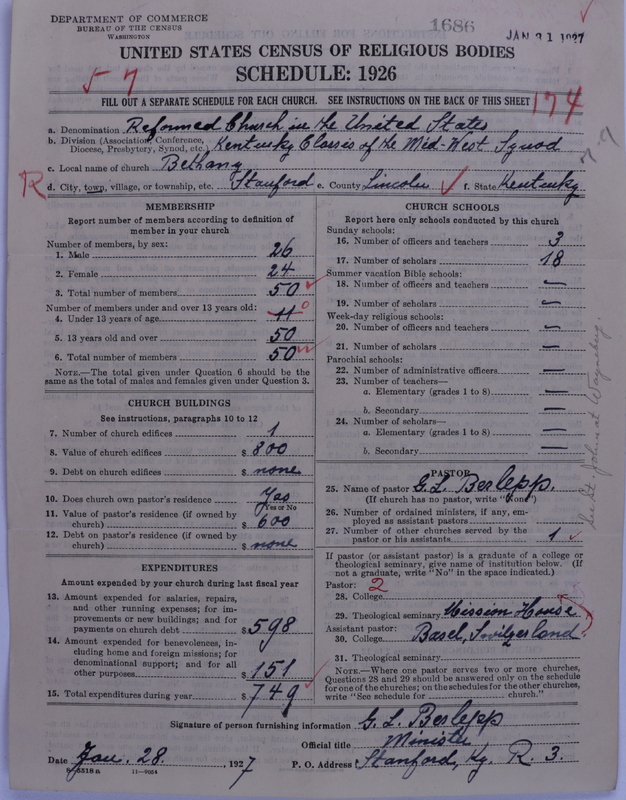 DEPARTMENT OF COMMERCE
BUREAU OF THE CENSUS
WASHINGTON
1686
JAN 31 1927
UNITED STATES CENSUS OF RELIGIOUS BODIES
SCHEDULE: 1926
5-7
FILL OUT A SEPARATE SCHEDULE FOR EACH CHURCH. SEE INSTRUCTIONS ON THE BACK OF THIS SHEET
174
a. Denomination Reformed Church in the United States
b. Division (Association, Conference, Diocese, Presbytery, Synod, etc.) Kentucky Classis of the Mid-West Synod
c. Local name of church Bethany
R d. City, town, village, or township, etc. Stanford e. County Lincoln f. State Kentucky
MEMBERSHIP
Report number of members according to definition of
member in your church
Number of members, by sex:
1. Male 26
2. Female 24
3. Total number of members 50
Number of members under and over 13 years old:
4. Under 13 years of age 11 0
5. 13 years old and over 50
6. Total number of members 50
NOTE.—The total given under Question 6 should be the
same as the total of males and females given under Question 3.
CHURCH BUILDINGS
See instructions, paragraphs 10 to 12
7. Number of church edifices 1
8. Value of church edifices $ 800
9. Debt on church edifices $ none
10. Does church own pastor's residence Yes
Yes or No
11. Value of pastor's residence (if owned by
church) $ 600
12. Debt on pastor's residence (if owned by
church) $ none
EXPENDITURES
Amount expended by your church during last fiscal year
13. Amount expended for salaries, repairs,
and other running expenses; for im-
provements or new buildings; and for
payments on church debt $ 598
14. Amount expended for benevolences, in-
cluding home and foreign missions; for
denominational support; and for all
other purposes $ 151
15. Total expenditures during year $ 749
CHURCH SCHOOLS
Report here only schools conducted by this church
Sunday schools:
16. Number of officers and teachers 3
17. Number of scholars 18
Summer vacation Bible schools:
18. Number of officers and teachers —
19. Number of scholars —
Week-day religious schools:
20. Number of officers and teachers —
21. Number of scholars —
Parochial schools:
22. Number of administrative officers —
23. Number of teachers—
a. Elementary (grades 1 to 8) —
b. Secondary —
24. Number of scholars—
a. Elementary (grades 1 to 8) —
b. Secondary —
PASTOR
25. Name of pastor G. L. Berlepp.
(If church has no pastor, write "none")
26. Number of ordained ministers, if any, em-
ployed as assistant pastors
27. Number of other churches served by the
pastor or his assistants 1
If pastor (or assistant pastor) is a graduate of a college or
theological seminary, give name of institution below. (If
not a graduate, write "No" in the space indicated.)
Pastor: 2
28. College
29. Theological seminary Mission House
Assistant pastor:
30. College Basel, Switzerland
31. Theological seminary
NOTE.—Where one pastor serves two or more churches,
Questions 28 and 29 should be answered only on the schedule
for one of the churches; on the schedules for the other churches,
write "See schedule for church."
See St. Johns at Waynesburg.
Signature of person furnishing information G. L. Berlepp
Official title Minister
Date Jan. 28. , 1927 P. O. Address Stanford, Ky. R. 3.
8-5518 a 11-9054